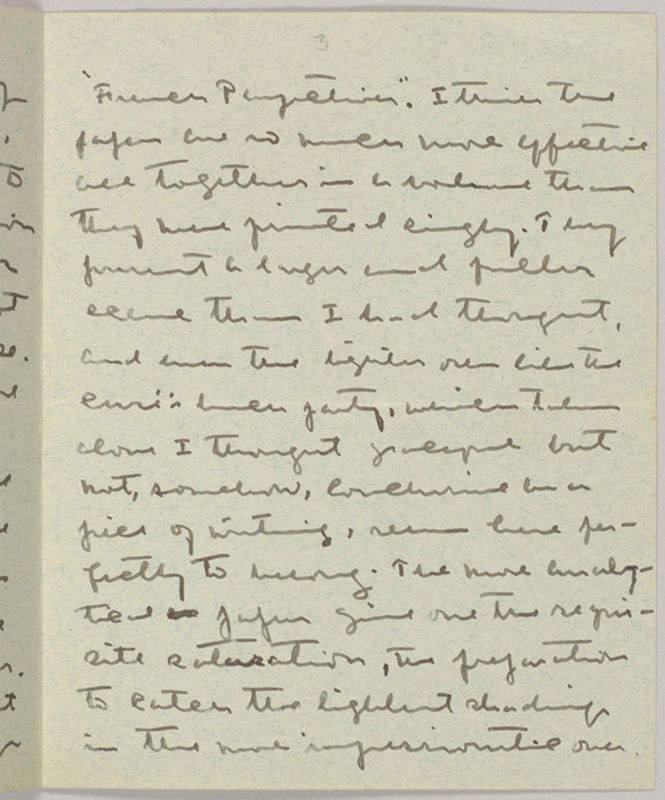 3
"French Perspectives". I think the
papers are so much more effective
all together in a volume than
they were printed singly. They
present a larger and fuller
scene than I had thought,
and even the lighter ones like the
Curé's lunch party, which taken
alone I thought graceful but
not, somehow, conclusive as a
piece of writing, seem here per-
fectly to belong. The more analy-
tical papers give one the requi-
site saturation, the preparation
to catch the lightest shadings
in the more impressionistic ones.